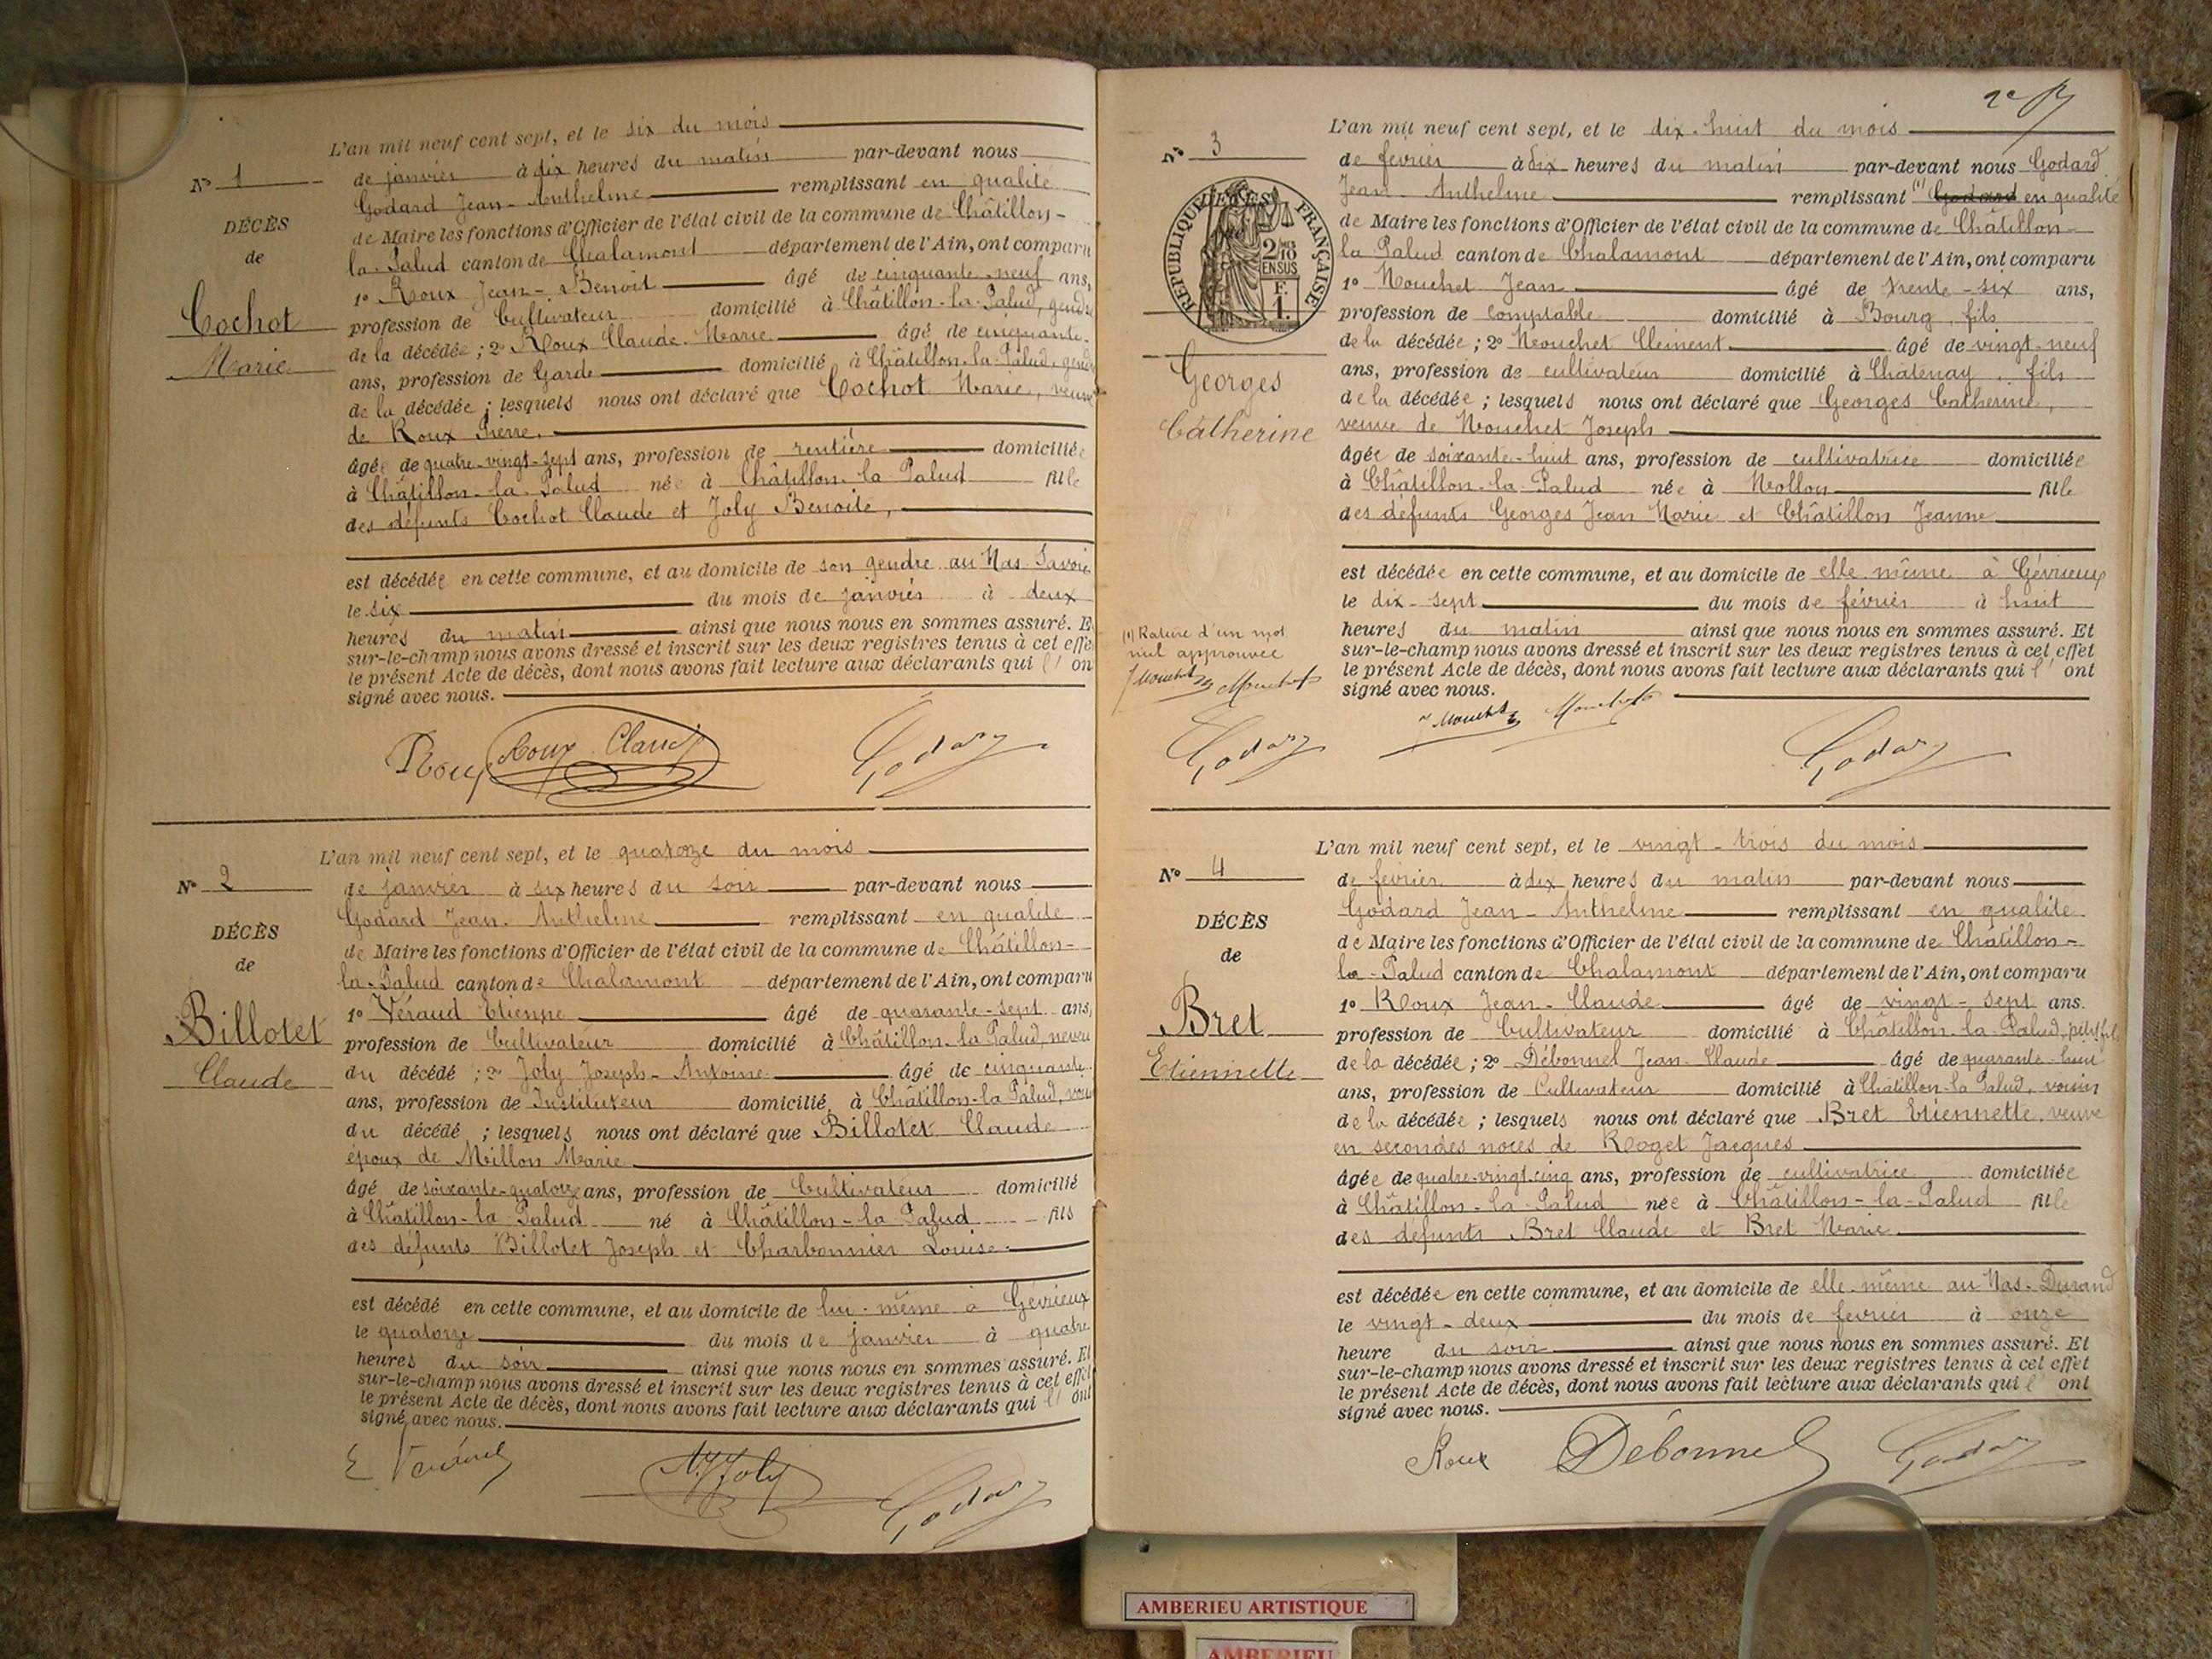 L'an mil neuf cent sept, et le six du mois
N° 1
de janvier à dix heures du matin par-devant nous
Godard Jean-Anthelme remplissant en qualité
DÉCÈS
de Maire les fonctions d'Officier de l'état civil de la commune de Châtillon-
de
la-Palud canton de Chalamont département de l'Ain, ont comparu
1° Roux Jean-Benoit âgé de cinquante-neuf ans,
Cochot
profession de Cultivateur domicilié à Châtillon-la-Palud, gendre
Marie
de la décédée ; 2° Roux Claude-Marie âgé de cinquante-
ans, profession de Garde domicilié à Châtillon-la-Palud, gendre
de la décédée ; lesquels nous ont déclaré que Cochot Marie, veuve
de Roux Pierre,
âgée de quatre-vingt-sept ans, profession de rentière domiciliée
à Châtillon-la-Palud née à Châtillon-la-Palud fille
des défunts Cochot Claude et Joly Benoite,
est décédée en cette commune, et au domicile de son gendre au Mas-Savoie
le six du mois de janvier à deux
heures du matin ainsi que nous nous en sommes assuré. E
sur-le-champ nous avons dressé et inscrit sur les deux registres tenus à cet effe
le présent Acte de décès, dont nous avons fait lecture aux déclarants qui l' on
signé avec nous.
Roux Roux Claud Godard
L'an mil neuf cent sept, et le quatorze du mois
N° 2
de janvier à six heures du soir par-devant nous
Godard Jean-Anthelme remplissant en qualité
DÉCÈS
de Maire les fonctions d'Officier de l'état civil de la commune de Châtillon-
de
la-Palud canton de Chalamont département de l'Ain, ont comparu
1° Véraud Etienne âgé de quarante-sept ans,
Billotet
profession de Cultivateur domicilié à Châtillon-la-Palud, neveu
Claude
du décédé ; 2° Joly Joseph-Antoine âgé de cinquante-
ans, profession de Instituteur domicilié à Châtillon-la-Palud, voi
du décédé ; lesquels nous ont déclaré que Billotet Claude
époux de Millon Marie
âgé de soixante-quatorze ans, profession de Cultivateur domicilié
à Châtillon-la-Palud né à Châtillon-la-Palud fils
des défunts Billotet Joseph et Charbonnier Louise
est décédé en cette commune, et au domicile de lui-même à Gévrieux
le quatorze du mois de janvier à quatre
heures du soir ainsi que nous nous en sommes assuré. Et
sur-le-champ nous avons dressé et inscrit sur les deux registres tenus à cet effet
le présent Acte de décès, dont nous avons fait lecture aux déclarants qui l' ont
signé avec nous.
E Véraud Joly Godard
L'an mil neuf cent sept, et le dix-huit du mois
N° 3
de février à dix heures du matin par-devant nous Godard
Jean-Anthelme remplissant (1) Godard en qualité
RÉPUBLIQUE FRANÇAISE
2/10 EN SUS
F. 1.
de Maire les fonctions d'Officier de l'état civil de la commune de Châtillon-
la-Palud canton de Chalamont département de l'Ain, ont comparu
1° Mouchet Jean âgé de trente-six ans,
profession de comptable domicilié à Bourg, fils
de la décédée ; 2° Mouchet Clément âgé de vingt-neuf
Georges
ans, profession de cultivateur domicilié à Châtenay, fils
de la décédée ; lesquels nous ont déclaré que Georges Catherine,
Catherine
veuve de Mouchet Joseph
âgée de soixante-huit ans, profession de cultivatrice domiciliée
à Châtillon-la-Palud née à Mollon fille
des défunts Georges Jean Marie et Châtillon Jeanne
est décédée en cette commune, et au domicile de elle-même à Gévrieux
le dix-sept du mois de février à huit
heures du matin ainsi que nous nous en sommes assuré. Et
(1) Rature d'un mot
nul approuvée
sur-le-champ nous avons dressé et inscrit sur les deux registres tenus à cet effet
le présent Acte de décès, dont nous avons fait lecture aux déclarants qui l' ont
J Mouchet Mouchet
signé avec nous.
J Mouchet Mouchet
Godard Godard
L'an mil neuf cent sept, et le vingt-trois du mois
N° 4
de février à dix heures du matin par-devant nous
Godard Jean-Anthelme remplissant en qualité
DÉCÈS
de Maire les fonctions d'Officier de l'état civil de la commune de Châtillon-
de
la-Palud canton de Chalamont département de l'Ain, ont comparu
1° Roux Jean-Claude âgé de vingt-sept ans.
Bret
profession de Cultivateur domicilié à Châtillon-la-Palud, petit fils
Etiennette
de la décédée ; 2° Débonnel Jean-Claude âgé de quarante-huit
ans, profession de Cultivateur domicilié à Châtillon-la-Palud, voisin
de la décédée ; lesquels nous ont déclaré que Bret Etiennette veuve
en secondes noces de Roget Jacques
âgée de quatre-vingt-cinq ans, profession de cultivatrice domiciliée
à Châtillon-la-Palud née à Châtillon-la-Palud fille
des défunts Bret Claude et Bret Marie
est décédée en cette commune, et au domicile de elle-même au Mas-Durand
le vingt-deux du mois de février à onze
heure du soir ainsi que nous nous en sommes assuré. Et
sur-le-champ nous avons dressé et inscrit sur les deux registres tenus à cet effet
le présent Acte de décès, dont nous avons fait lecture aux déclarants qui l' ont
signé avec nous.
Roux Débonnel Godard
AMBERIEU ARTISTIQUE
AMBERIEU